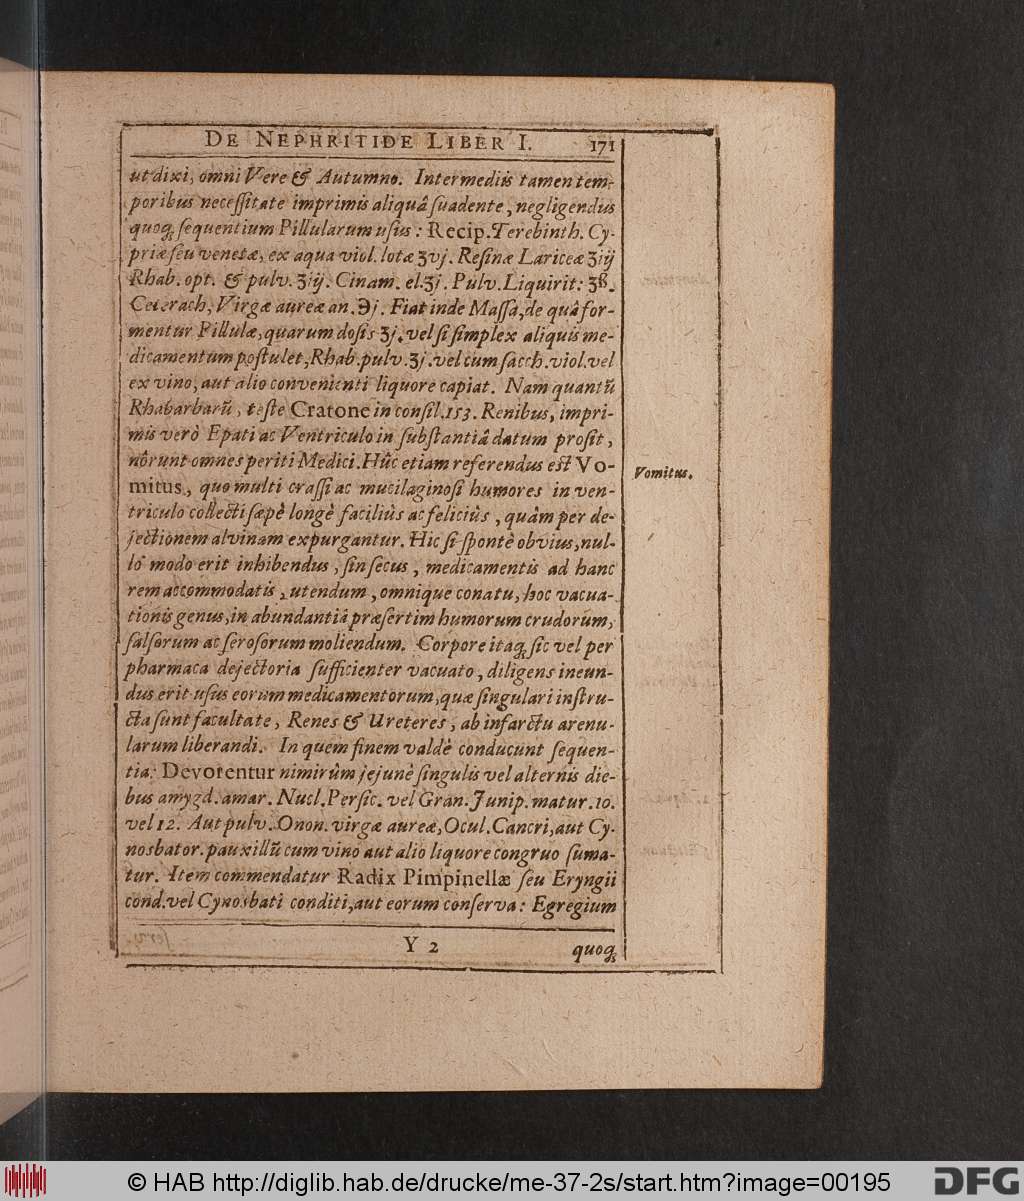 DE NEPHRITIDE LIBER I. 171
ut dixi, omni Vere & Autumno. Intermediis tamen tem-
poribus necessitate imprimis aliquâ suadente, negligendus
quoq; sequentium Pillularum usus: Recip. Terebinth. Cy-
priæ seu venetæ, ex aqua viol. lotæ ʒvj. Resinæ Lariceæ ʒiij
Rhab. opt. & pulv. ʒiij. Cinam. el. ʒj. Pulv. Liquirit: ʒß.
Ceterach, Virgæ aureæ an. ℈j. Fiat inde Massa, de quâ for-
mentur Pillulæ, quarum dosis ʒj. vel si simplex aliquis me-
dicamentum postulet, Rhab. pulv. ʒj. vel cum sacch. viol. vel
ex vino, aut alio convenienti liquore capiat. Nam quantũ
Rhabarbarũ, teste Cratone in consil. 153. Renibus, impri-
mis verò Epati ac Ventriculo in substantiâ datum prosit,
nôrunt omnes periti Medici. Hûc etiam referendus est Vo-
mitus, quo multi crassi ac mucilaginosi humores in ven-
triculo collecti sæpè longè faciliùs ac feliciùs, quàm per de-
jectionem alvinam expurgantur. Hic si spontè obvius, nul-
lô modo erit inhibendus, sin secus, medicamentis ad hanc
rem accommodatis, utendum, omnique conatu, hoc vacua-
tionis genus, in abundantiâ præsertim humorum crudorum,
salsorum ac serosorum moliendum. Corpore itaq; sic vel per
pharmaca dejectoria sufficienter vacuato, diligens ineun-
dus erit usus eorum medicamentorum, quæ singulari instru-
cta sunt facultate, Renes & Ureteres, ab infarctu arenu-
larum liberandi. In quem finem valdè conducunt sequen-
tia: Devorentur nimirûm jejunè singulis vel alternis die-
bus amygd. amar. Nucl. Persic. vel Gran. Junip. matur. 10.
vel 12. Aut pulv. Onon. virgæ aureæ, Ocul. Cancri, aut Cy-
nosbator. pauxillũ cum vino aut alio liquore congruo suma-
tur. Item commendatur Radix Pimpinellæ seu Eryngii
cond. vel Cynosbati conditi, aut eorum conserva: Egregium
Y 2 quoq;
Vomitus.
© HAB http://diglib.hab.de/drucke/me-37-2s/start.htm?image=00195
DFG